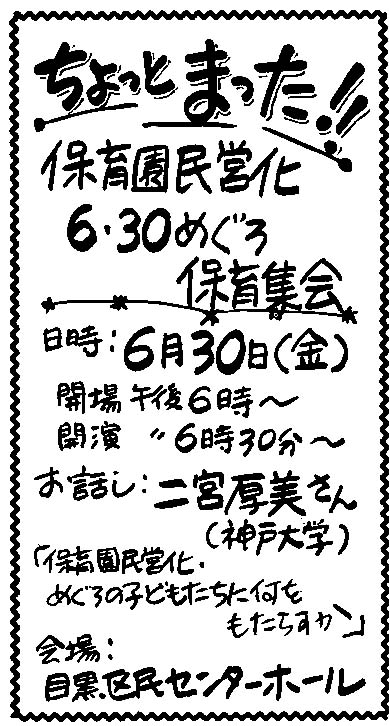 ちょっとまった!!
保育園民営化
6・30めぐろ
保育集会
日時:6月30日(金)
開場 午後6時〜
開演 〃6時30分〜
お話し:二宮厚美さん
(神戸大学)
「保育園民営化・
めぐろの子どもたちに何を
もたらすか」
会場:
目黒区民センターホール